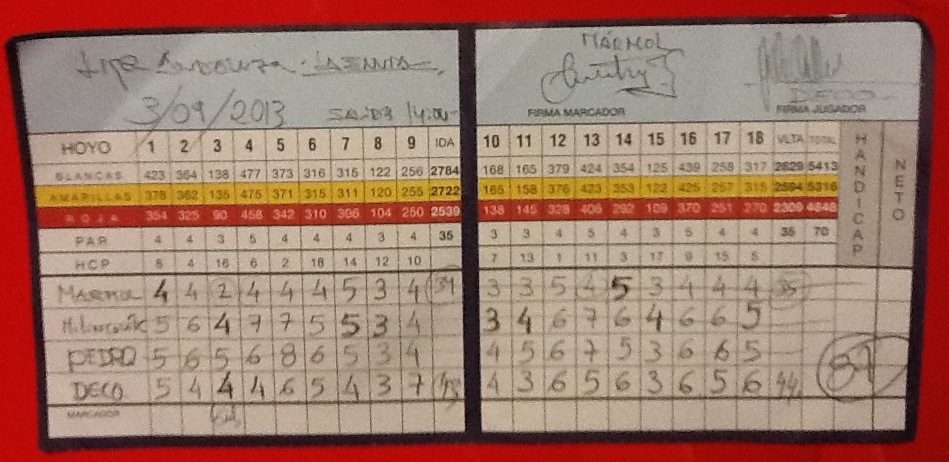 MÁRMOL
3/09/2013
FIRMA MARCADOR
DECO
FIRMA JUGADOR
HOYO 1 2 3 4 5 6 7 8 9 IDA 10 11 12 13 14 15 16 17 18 VLTA TOTAL
BLANCAS 423 364 138 477 373 316 315 122 256 2784 168 165 379 424 354 125 439 258 317 2629 5413
AMARILLAS 378 362 135 475 371 315 311 120 255 2722 165 158 376 423 353 122 425 257 315 2594 5316
ROJA 354 325 90 458 342 310 306 104 250 2539 138 145 328 406 292 109 370 251 270 2309 4848
PAR 4 4 3 5 4 4 4 3 4 35 3 3 4 5 4 3 5 4 4 35 70
HCP 8 4 16 6 2 18 14 12 10 7 13 1 11 3 17 9 15 5
HANDICAP
NETO
MARMOL 4 4 2 4 4 4 5 3 4 34 3 3 5 4 5 3 4 4 4 35
5 6 4 7 7 5 5 3 4 3 4 6 7 6 4 6 6 5
PEDRO 5 6 5 6 8 6 5 3 4 4 5 6 7 5 3 6 6 5
DECO 5 4 4 4 6 5 4 3 7 4 3 6 5 6 3 6 5 6 44
MARCADOR